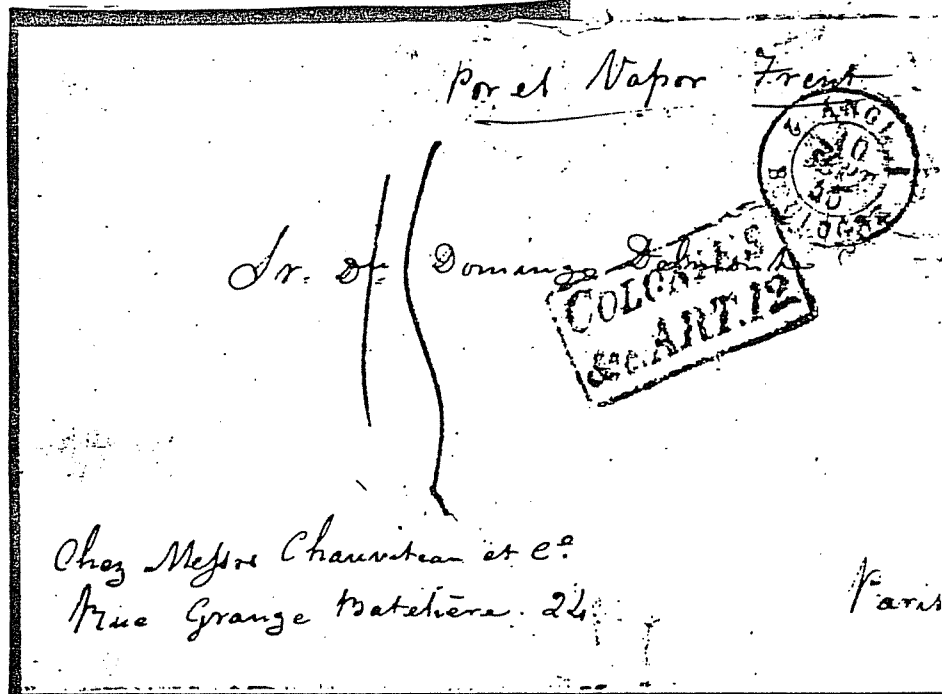 Por el Vapor Trent
2 ANGL.
10
BOULOGNE
Sr. Dn Domingo
COLONIES
&c. ART. 12
15
Chez Messrs Chauviteau et Ce.
Rue Grange Batelière. 24.
Paris